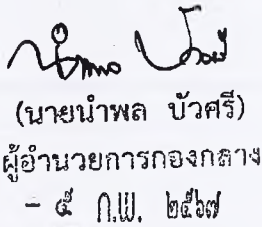 (นายนำพล บัวศรี)
ผู้อำนวยการกองกลาง
- ๕ ก.พ. ๒๕๖๗